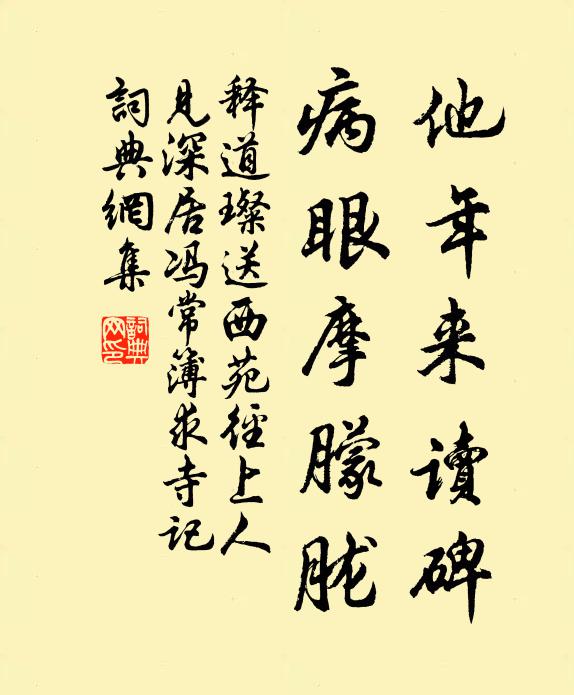 他年来讀碑
病眼摩朦胧
释道璨送西苑径上人
见深居冯常簿求寺记
詞典網集
詞典网印